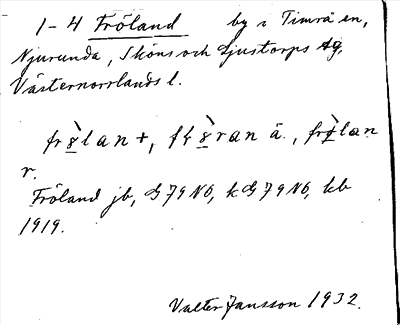 1-4 Fröland by i Timrå sn,
Njurunda, Sköns och Ljustorps tg,
Västernorrlands l.
frö̀lan +, frö̀ran ä., frö̀lan
r.
Fröland jb, G 79 N6, kG 79 N6, kb
1919.
Valter Jansson 1932.